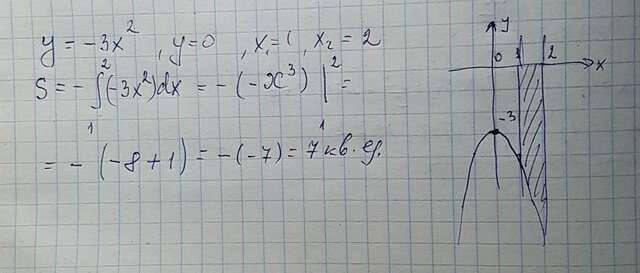 y = -3x², y=0, x₁=1, x₂ = 2
S = - ∫₁² (-3x²)dx = - (-x³) |₁² =
= - (-8+1) = -(-7) = 7 кв. ед.
y
0 1 2 x
-3